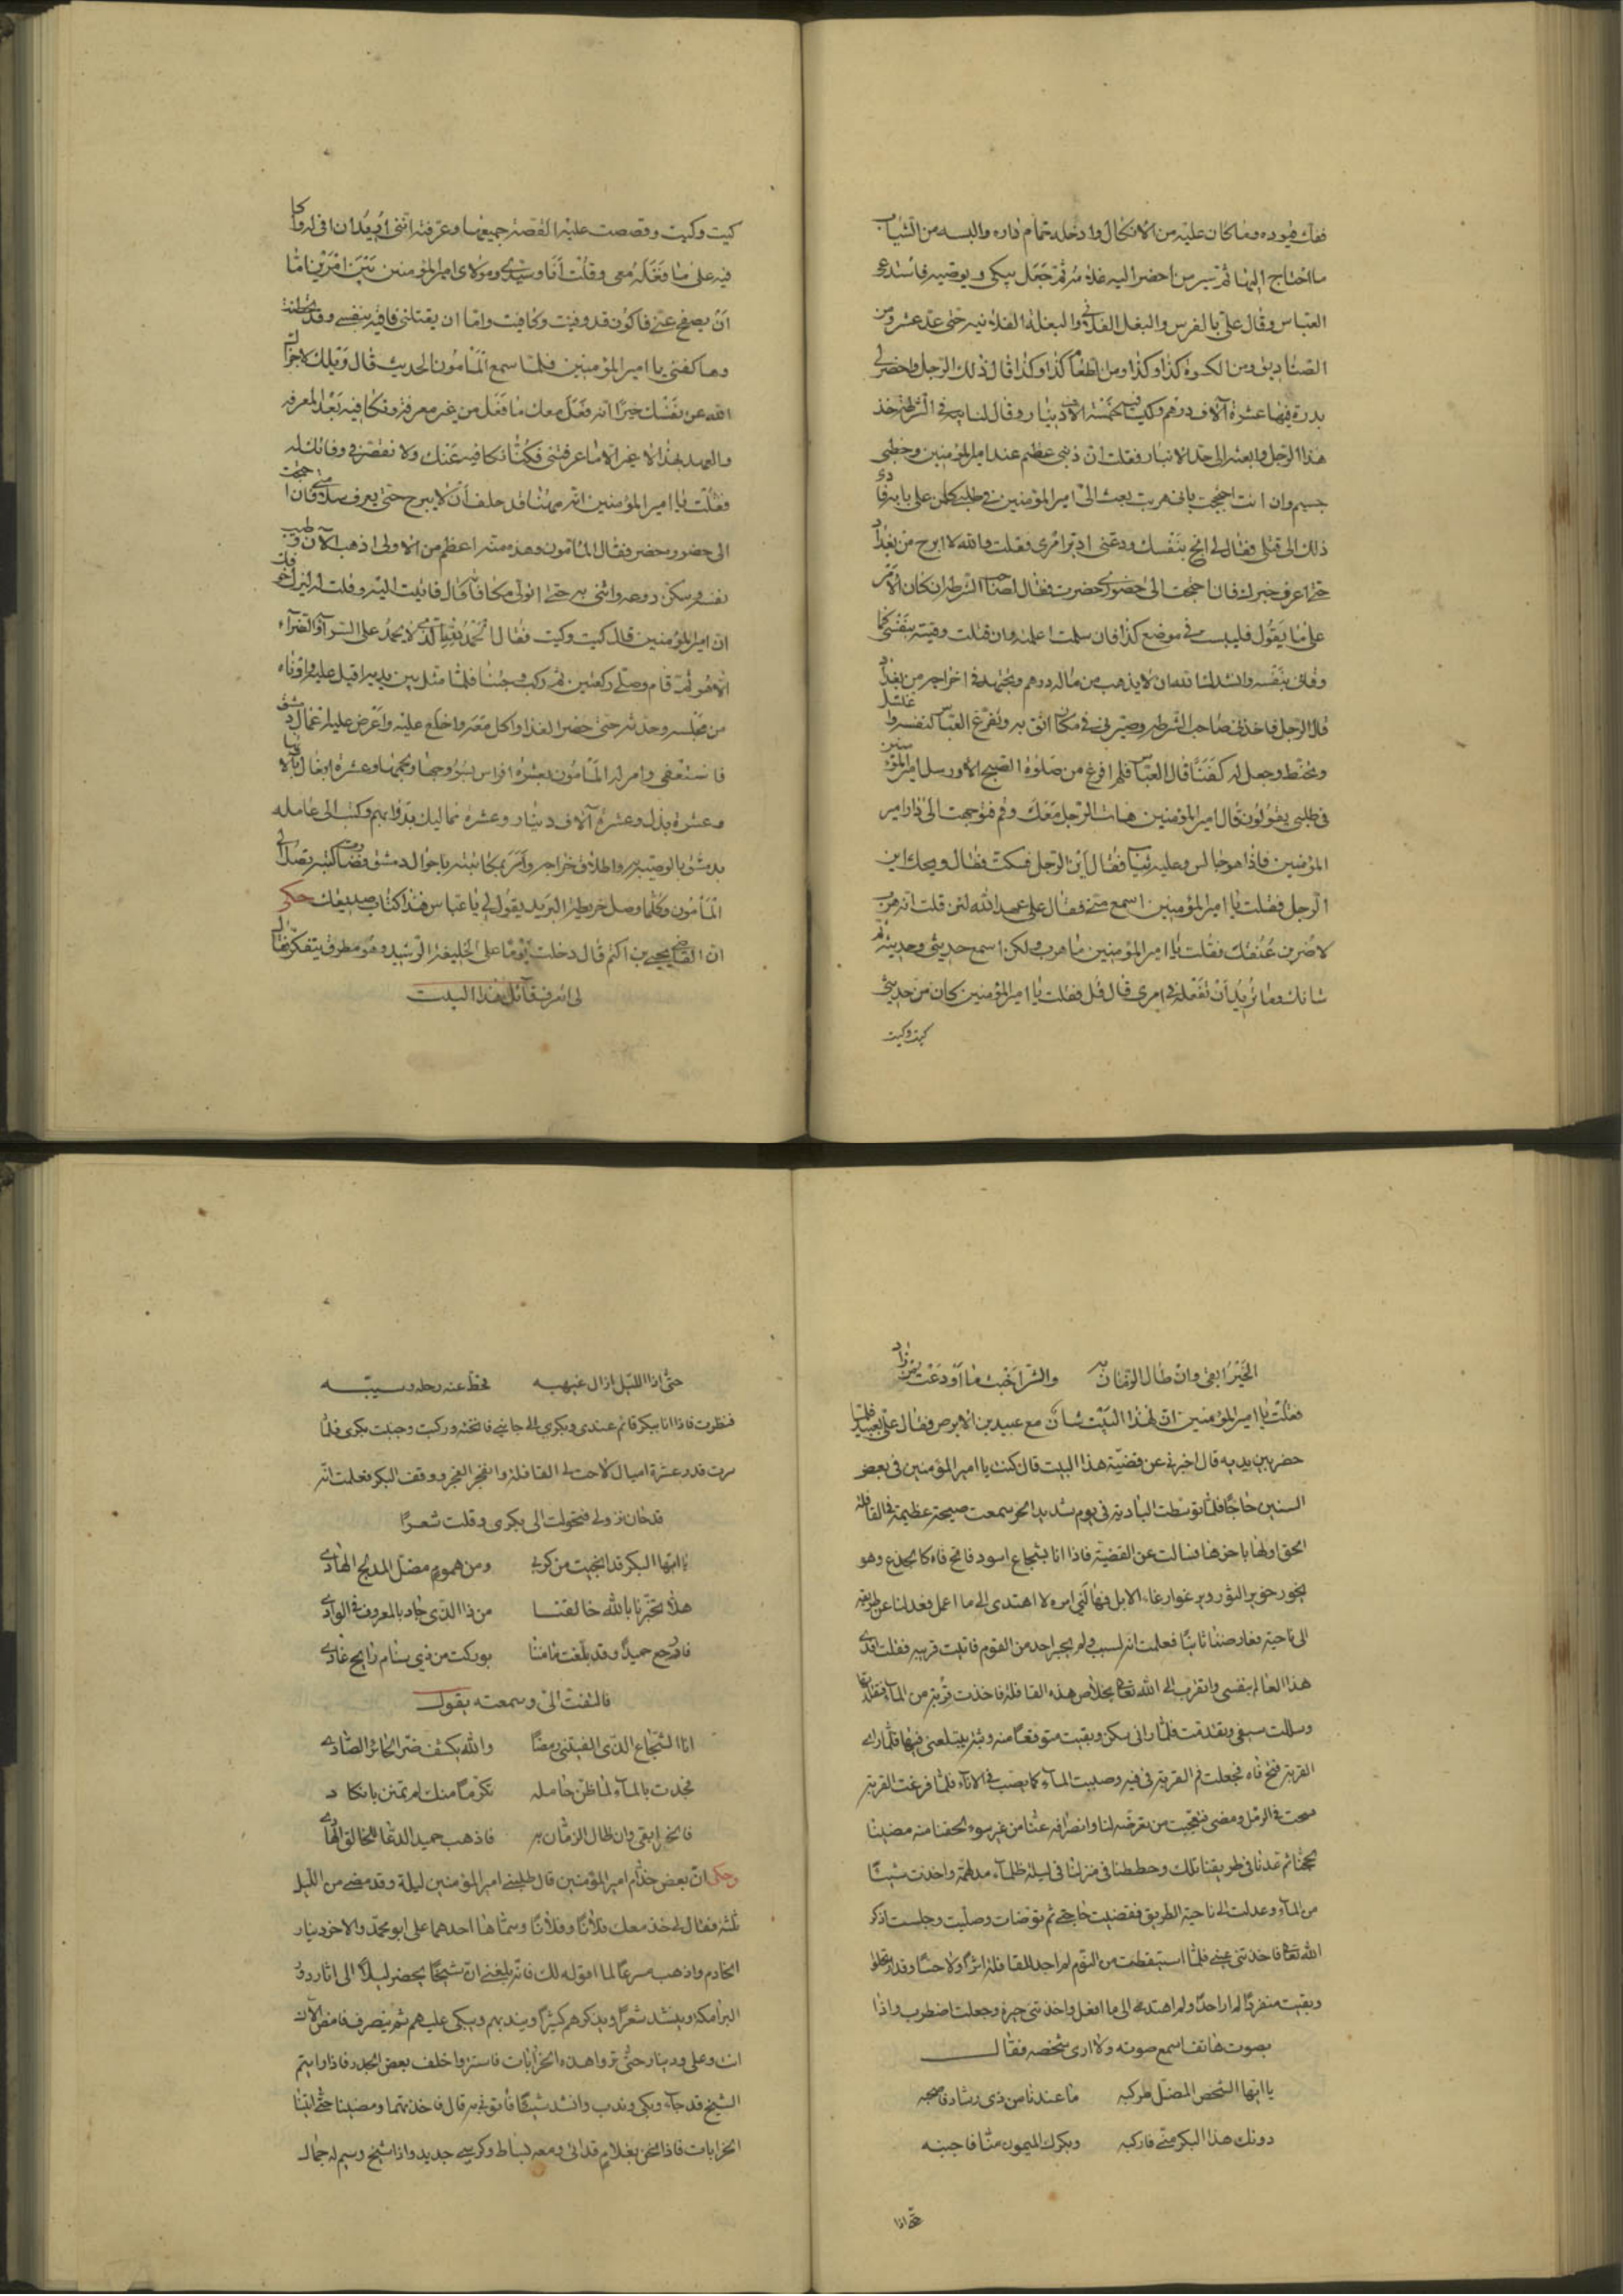 ففك قيوده وما كان عليه من الانكال وادخله حمام داره والبسه من الثياب
ما احتاج اليها ثم سير من احضر اليه غلامه ثم جعل يبكي ويوصيه فاستدعى
العباس وقال علي بالفرس والبغل الفلاني والبغلة الفلانية حتى عد عشرة ومن
الصناديق ومن الكسوة كذا وكذا ومن الطعام كذا وكذا قال ذلك الرجل واحضر لي
بدرة فيها عشرة آلاف درهم وكيس فيه خمسة آلاف دينار وقال لنائبه في الشرطة خذ
هذا الرجل وابعثه الى حد الانبار فقلت ان ذنبي عظيم عند امير المؤمنين وخطبي
جسيم وان انت احججت باني هربت بعث الي امير المؤمنين في طلبي كل من على بابه فارد
ذلك الى قتلي فقال لي انج بنفسك ودعني ادبر امري فقلت والله لا ابرح من بغداد
حتى اعرف خبرك فان احتجت الى حضوري حضرت فقال لصاحب الشرطة ان كان الامر
على ما يقول فليبت في موضع كذا فان سلمت اعلمته وان قتلت وقيته بنفسي كما
وقاني بنفسه وانشدك الله ان لا يذهب من ماله درهم وتجتهد في اخراجه من بغداد
قال الرجل فاخذني صاحب الشرطة وصيرني في مكان اثق به وتفرغ العباس لنفسه واغتسل
وتحنط وجعل له كفنا قال العباس فلم افرغ من صلوة الصبح الا ورسل امير المؤمنين
في طلبي يقولون قال امير المؤمنين هات الرجل معك وقم فتوجهت الى دار امير
المؤمنين فاذا هو جالس وعليه ثيابه فقال اين الرجل فسكت فقال ويحك اين
الرجل فقلت يا امير المؤمنين اسمع مني فقال علي عهد الله لئن قلت انه هرب
لاضربن عنقك فقلت يا امير المؤمنين ما هرب ولكن اسمع حديثي وحديثه ثم
شانك وما تريد ان تفعله في امري قال قل فقلت يا امير المؤمنين كان من حديثي
كيت وكيت
كيت وكيت وقصصت عليه القصة جميعها وعرفته انني اريد ان افي له واكا
فيه على ما فعله معي وقلت انا وسيدي ومولاي امير المؤمنين بين امرين اما
ان يصفح عني فاكون قد وفيت وكافيت واما ان يقتلني فاقيه بنفسي وقد تحنطت
وها كفني يا امير المؤمنين فلما سمع المأمون الحديث قال ويلك لا جزاك
الله عن نفسك خيرا انه فعل معك ما فعل من غير معرفة وتكافيه بعد المعرفة
والعهد بهذا لا غير الا ما عرفتني فكنا نكافيه عنك ولا نقصر في وفائك له
فقلت يا امير المؤمنين انه ههنا قد حلف ان لا يبرح حتى يعرف سلامتي فان احتجت
الى حضوره حضر فقال المأمون وهذه منة اعظم من الاولى اذهب الآن وطيب
نفسه وسكن روعه وائتني به حتى اتولى مكافاته قال فاتيت اليه وقلت له ليزل خوفك
ان امير المؤمنين قال كيت وكيت فقال الحمد لله الذي لا يحمد على السراء والضراء
الا هو ثم قام وصلى ركعتين ثم ركب وجئنا فلما مثل بين يديه اقبل عليه وادناه
من مجلسه وحدثه حتى حضر الغذا واكل معه واخلع عليه واعرض عليه اعمال دمشق
فاستعفى وامر له المأمون بعشرة افراس بسروجها ولجمها وعشرة ابغال بآلاتها
وعشرة بدل وعشرة آلاف دينار وعشرة مماليك بدوابهم وكتب الى عامله
بدمشق بالوصية به واطلاق خراجه وامر بمكاتبته باحوال دمشق فصارت كتبه تصل الى
المأمون وكلما وصل خريطة البريد يقول لي يا عباس هذا كتاب صديقك حكي
ان القاضي يحيى بن اكثم قال دخلت يوما على الخليفة الرشيد وهو مطرق يتفكر فقال
لي اتعرف قائل هذا البيت
الخير ابقى وان طال الزمان به والشر اخبث ما اوعيت من زاد
فقلت يا امير المؤمنين ان لهذا البيت شان مع عبيد بن الابرص فقال علي بعبيد فلما
حضر بين يديه قال اخبرني عن قضية هذا البيت قال كنت يا امير المؤمنين في بعض
السنين حاجا فلما توسطت البادية في يوم شديد الحر سمعت صيحة عظيمة في القافلة
الحق اولها باخرها فسالت عن القضية فاذا انا بشجاع اسود فاتح فاه كالجذع وهو
يخور خوير الثور ويرغو ارغاء الابل فهالني امره لا اهتدى الى ما اعمل فعدلنا عن طريقه
الى ناحية فعارضنا ثانيا فعلمت انه لسبب ولم يجسر احد من القوم فاتيت قربه فقلت افدي
هذا العالم بنفسي واتقرب الى الله تعالى بخلاص هذه القافلة فاخذت قربة من الماء فتقلدتها
وسللت سيفي وتقدمت فلما راني سكن وبقيت متوقعا منه وثبة يبتلعني فيها فلما راى
القربة فتح فاه فجعلت فم القربة في فيه وصببت الماء كما يصب في الاناء فلما فرغت القربة
سحب في الرمل ومضى فتعجبت من تعرضه لنا وانصرافه عنا من غير سوء لحقنا منه مضينا
لحجنا ثم عدنا في طريقنا تلك وحططنا في منزلنا في ليلة ظلماء مدلهمة واخذت شيئا
من الماء وعدلت الى ناحية الطريق فقضيت حاجتي ثم توضات وصليت وجلست اذكر
الله تعالى فاخذتني عيني فلما استيقظت من النوم لم اجد للقافلة اثرا ولا حسا وقد ارتحلوا
وبقيت منفردا لم ار احدا ولم اهتد الى ما افعل واخذتني حيرة وجعلت اضطرب واذا
بصوت هاتف اسمع صوته ولا ارى شخصه فقال
يا ايها الشخص المضل مركبه ما عنده من ذي رشاد يصحبه
دونك هذا البكر منى فاركبه وبكرك الميمون منا فاجنبه
حتى اذا
حتى اذا الليل زال غيهبه فحط عنه رحله وسيبه
فنظرت فاذا انا ببكر قائم عندي وبكري الى جانبي فانخته وركبت وجنبت بكري فلما
سرت قدر عشرة اميال لاحت لي القافلة وانفجر الفجر ووقف البكر فعلمت انه
قد حان نزولي فتحولت الى بكري وقلت شعرا
يا ايها البكر قد انجيت من كرب ومن هموم مضل المدلج الهادي
هلا تخبرنا بالله خالقنا من ذا الذي جاد بالمعروف في الوادي
فارجع حميدا وقد بلغت مامننا بوركت من ذي سنام رايح غادي
فالتفت الي وسمعته يقول
انا الشجاع الذي الفيتني رمضا والله يكشف ضر الحائر الصادي
فجدت بالماء لما ظن حامله تكرما منك لم تمنن بانكاد
فالخير ابقى وان طال الزمان به فاذهب حميد الدعا للخالق الهادي
وحكى ان بعض خدام امير المؤمنين قال طلبني امير المؤمنين ليلة وقد مضى من الليل
ثلثه فقال لي خذ معك فلانا وفلانا وسماهما احدهما علي ابو محمد والاخر دينار
الخادم واذهب مسرعا لما اقوله لك فانه بلغني ان شيخا يحضر ليلا الى اثار دور
البرامكة وينشد شعرا ويذكرهم كثيرا ويندبهم ويبكي عليهم ثم ينصرف فامض الآن
انت وعلي ودينار حتى تروا هذه الخرابات فاستتروا خلف بعض الجدر فاذا رايتم
الشيخ قد جاء وبكى وندب وانشد شيئا فأتوني به قال فاخذتهما ومضينا حتى اتينا
الخرابات فاذا نحن بغلام قد اتى ومعه بساط وكرسي جديد واذا شيخ وسيم له جمال